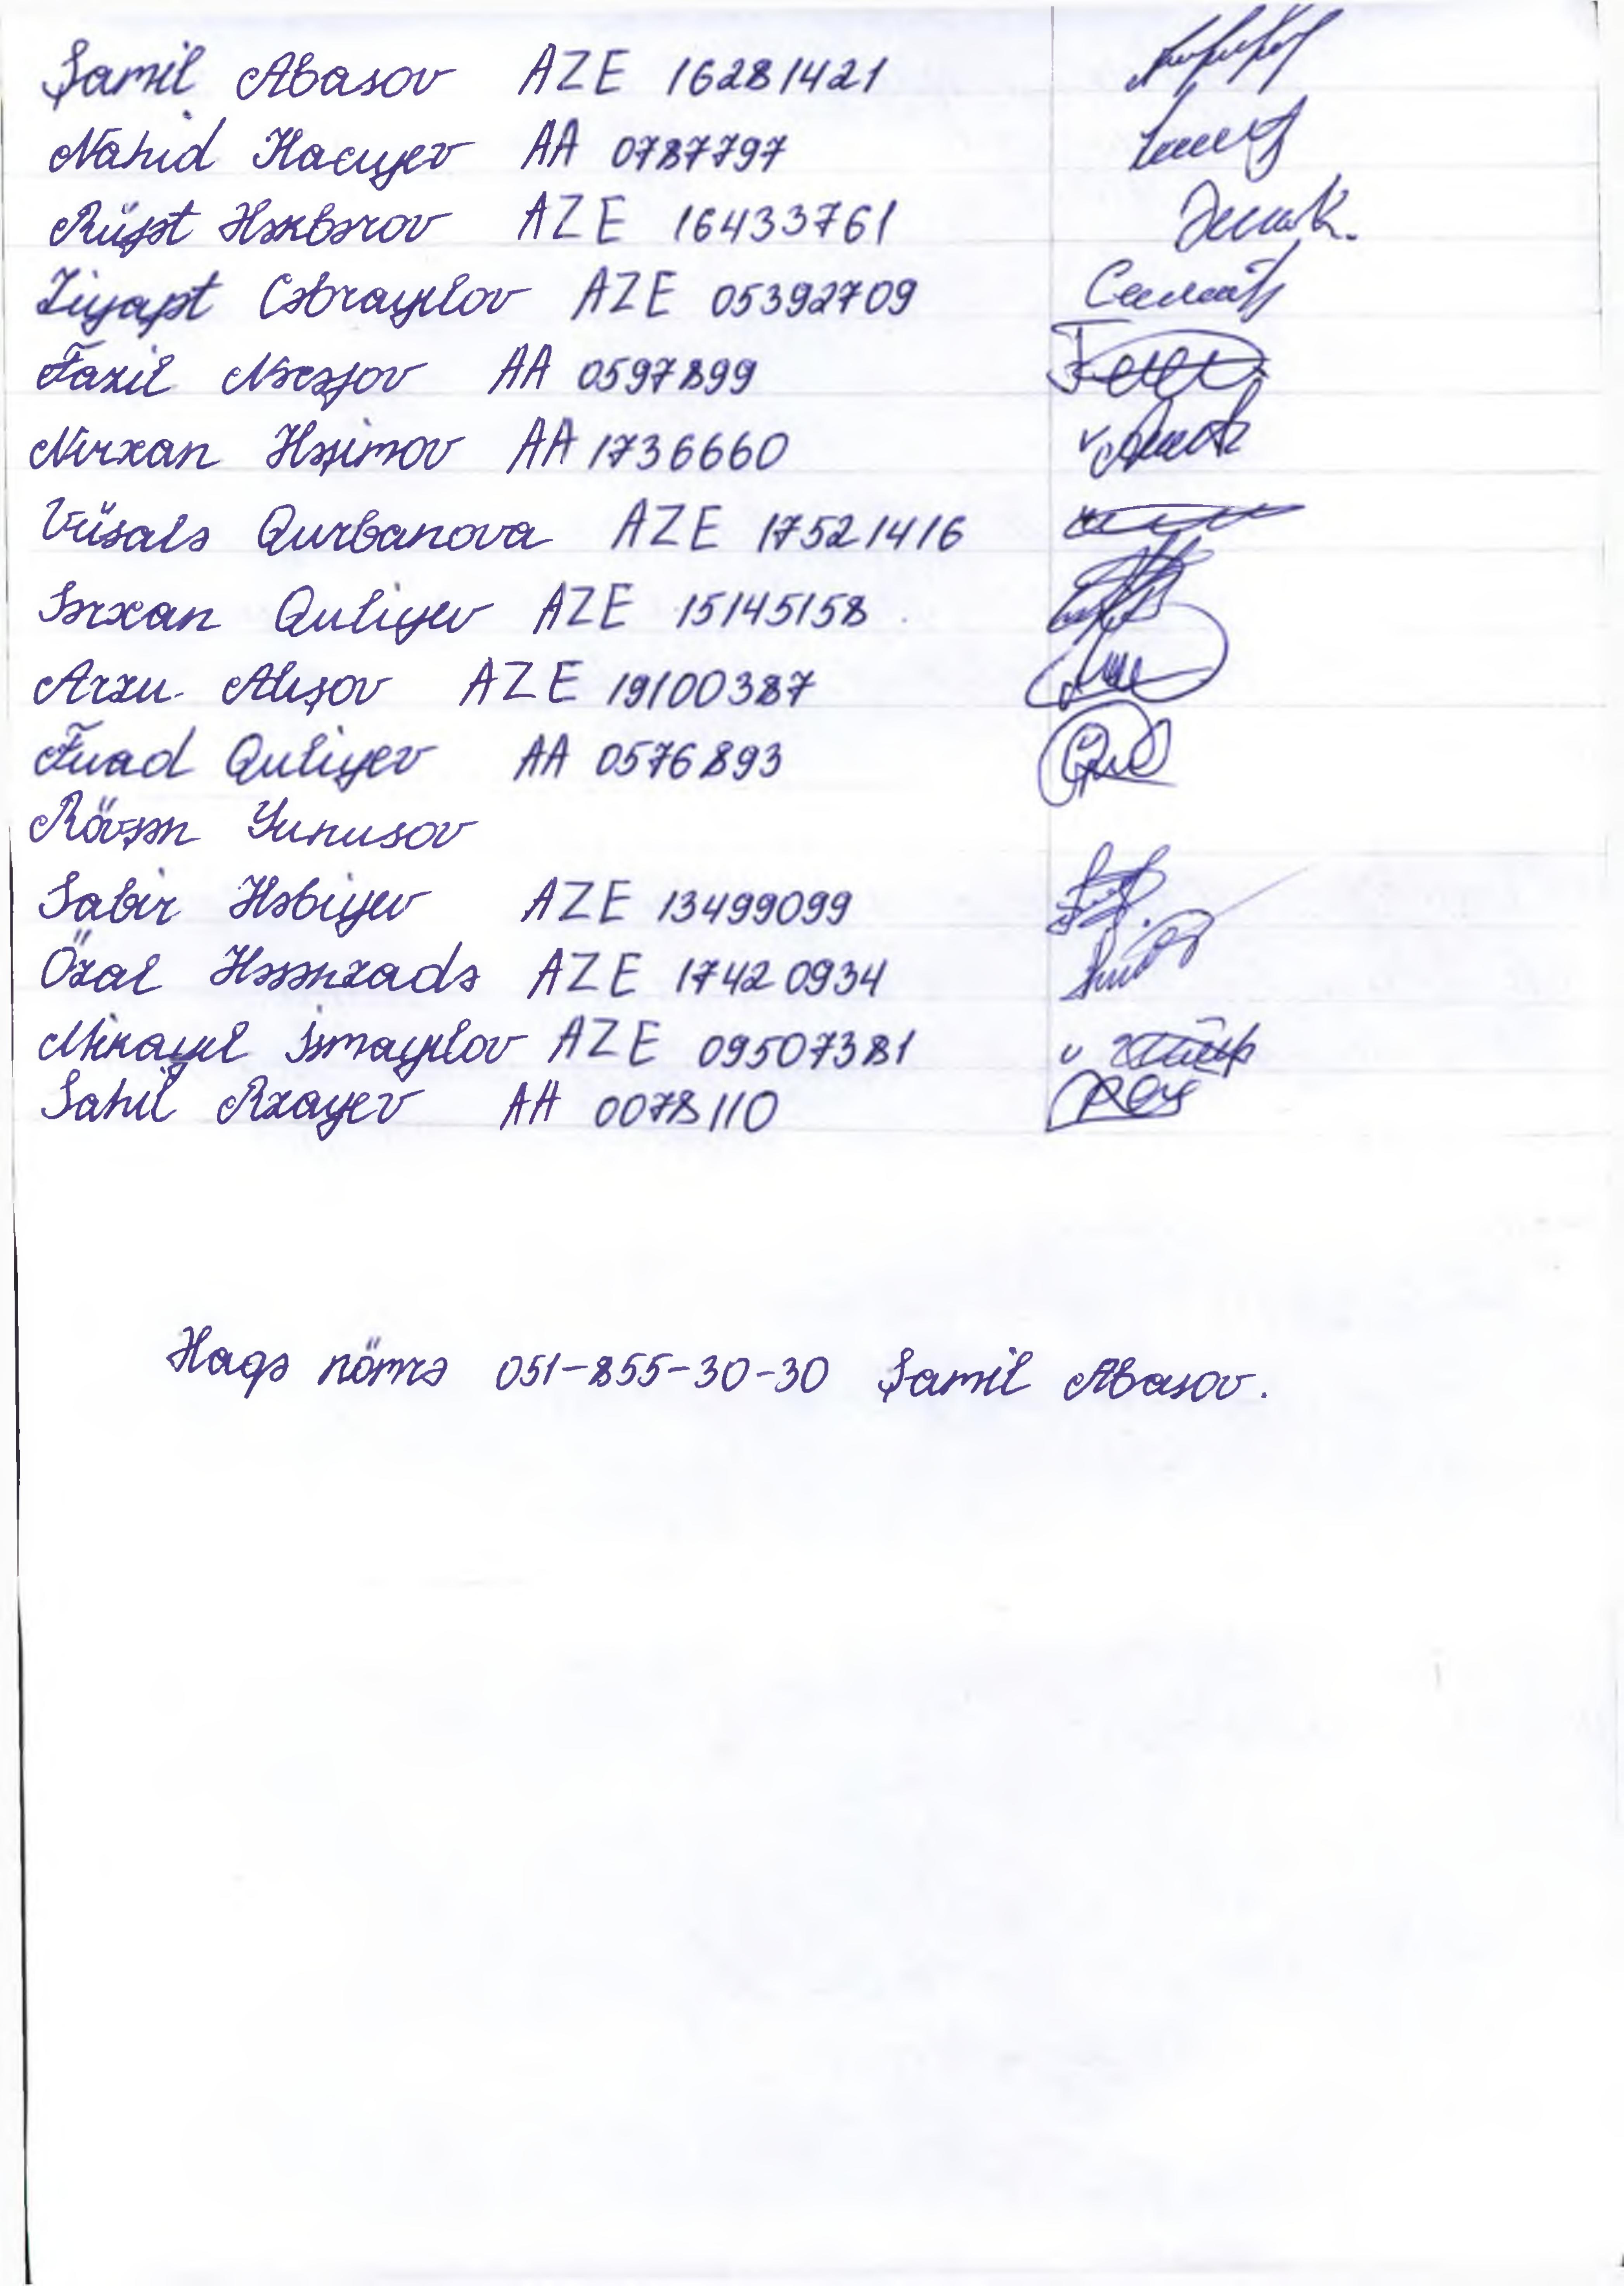 Şamil Abasov AZE 16281421
Nahid Hacıyev AA 0787797
Rüşət Həkbərov AZE 16433761
Ziyafət Cəbrayılov AZE 05392709
Fazil Nəcəfov AA 0597899
Nurxan Həşimov AA 1736660
Vüsalə Qurbanova AZE 17521416
Sərxan Quliyev AZE 15145158
Arzu Alışov AZE 19100387
Fuad Quliyev AA 0576893
Rövşən Yunusov
Sabir Həbiyev AZE 13499099
Özal Həsənzadə AZE 17420934
Mikayıl İsmayılov AZE 09507381
Sahil Rzayev AA 0078110
Əlaqə nömrə 051-855-30-30 Şamil Abasov.